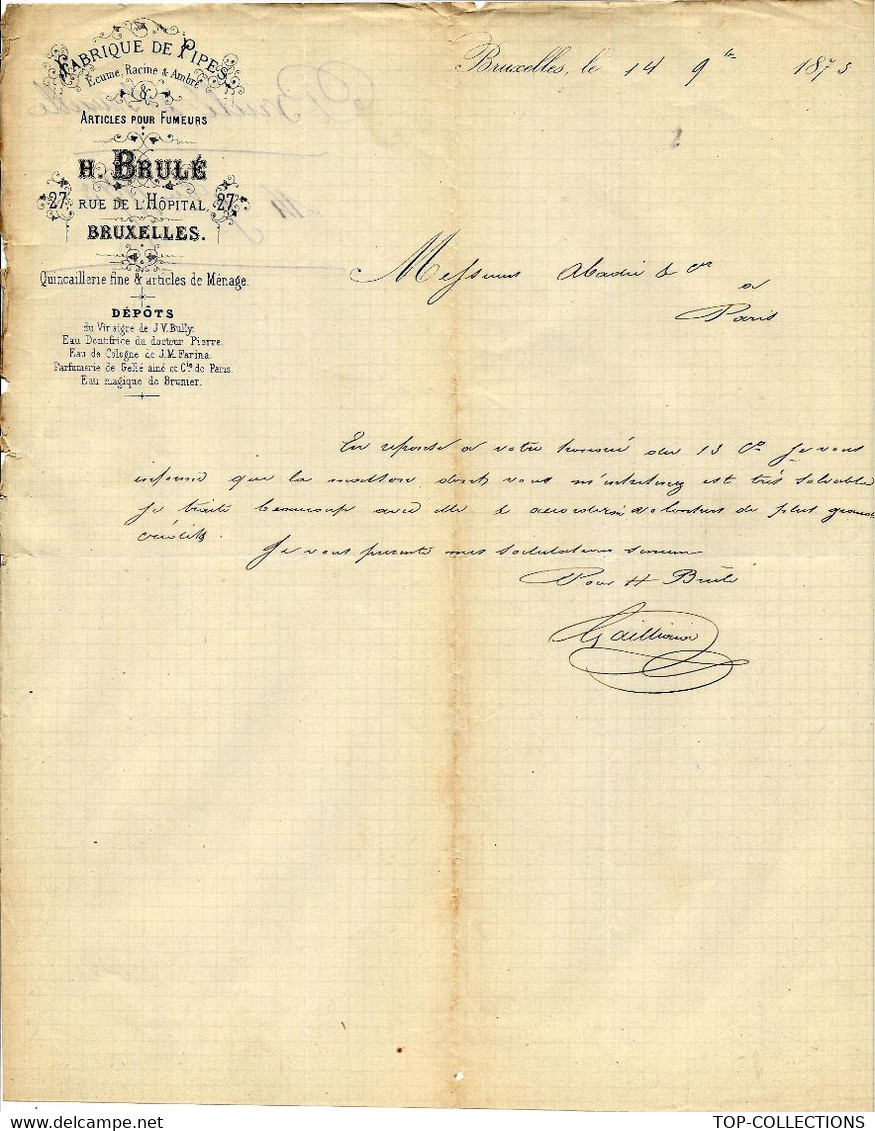 FABRIQUE DE PIPES
Ecume, Racine & Ambre
&
ARTICLES POUR FUMEURS
H. BRULÉ
27. RUE DE L'HÔPITAL, 27.
BRUXELLES.
Quincaillerie fine & articles de Ménage.
DÉPÔTS
du Vinaigre de J.V. Bully.
Eau Dentifrice du docteur Pierre.
Eau de Cologne de J.M. Farina.
Parfumerie de Gellé ainé et Cie de Paris.
Eau magique de Brunier.
Bruxelles, le 14 9bre 1875
Messieurs Abadie & Cie
a
Paris
En reponse a votre honoré du 13 Ct je vous
informe que la maison dont vous m'entretenez est très solvable
je traite beaucoup avec elle & accorderai volontiers de plus grands
crédits.
Je vous presente mes salutations
Pour H Brulé
TOP-COLLECTIONS